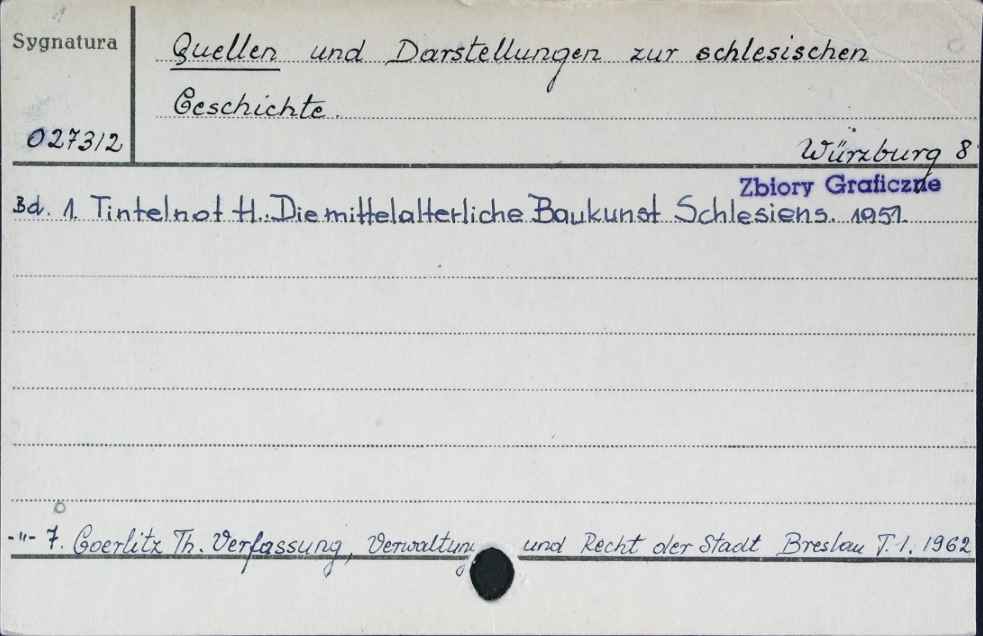 Sygnatura
Quellen und Darstellungen zur schlesischen
Geschichte.
027312
Würzburg 8°
Zbiory Graficzne
Bd. 1. Tintelnot H.: Die mittelalterliche Baukunst Schlesiens. 1951.
-"- 7. Goerlitz Th. Verfassung, Verwaltung und Recht der Stadt Breslau T. 1. 1962